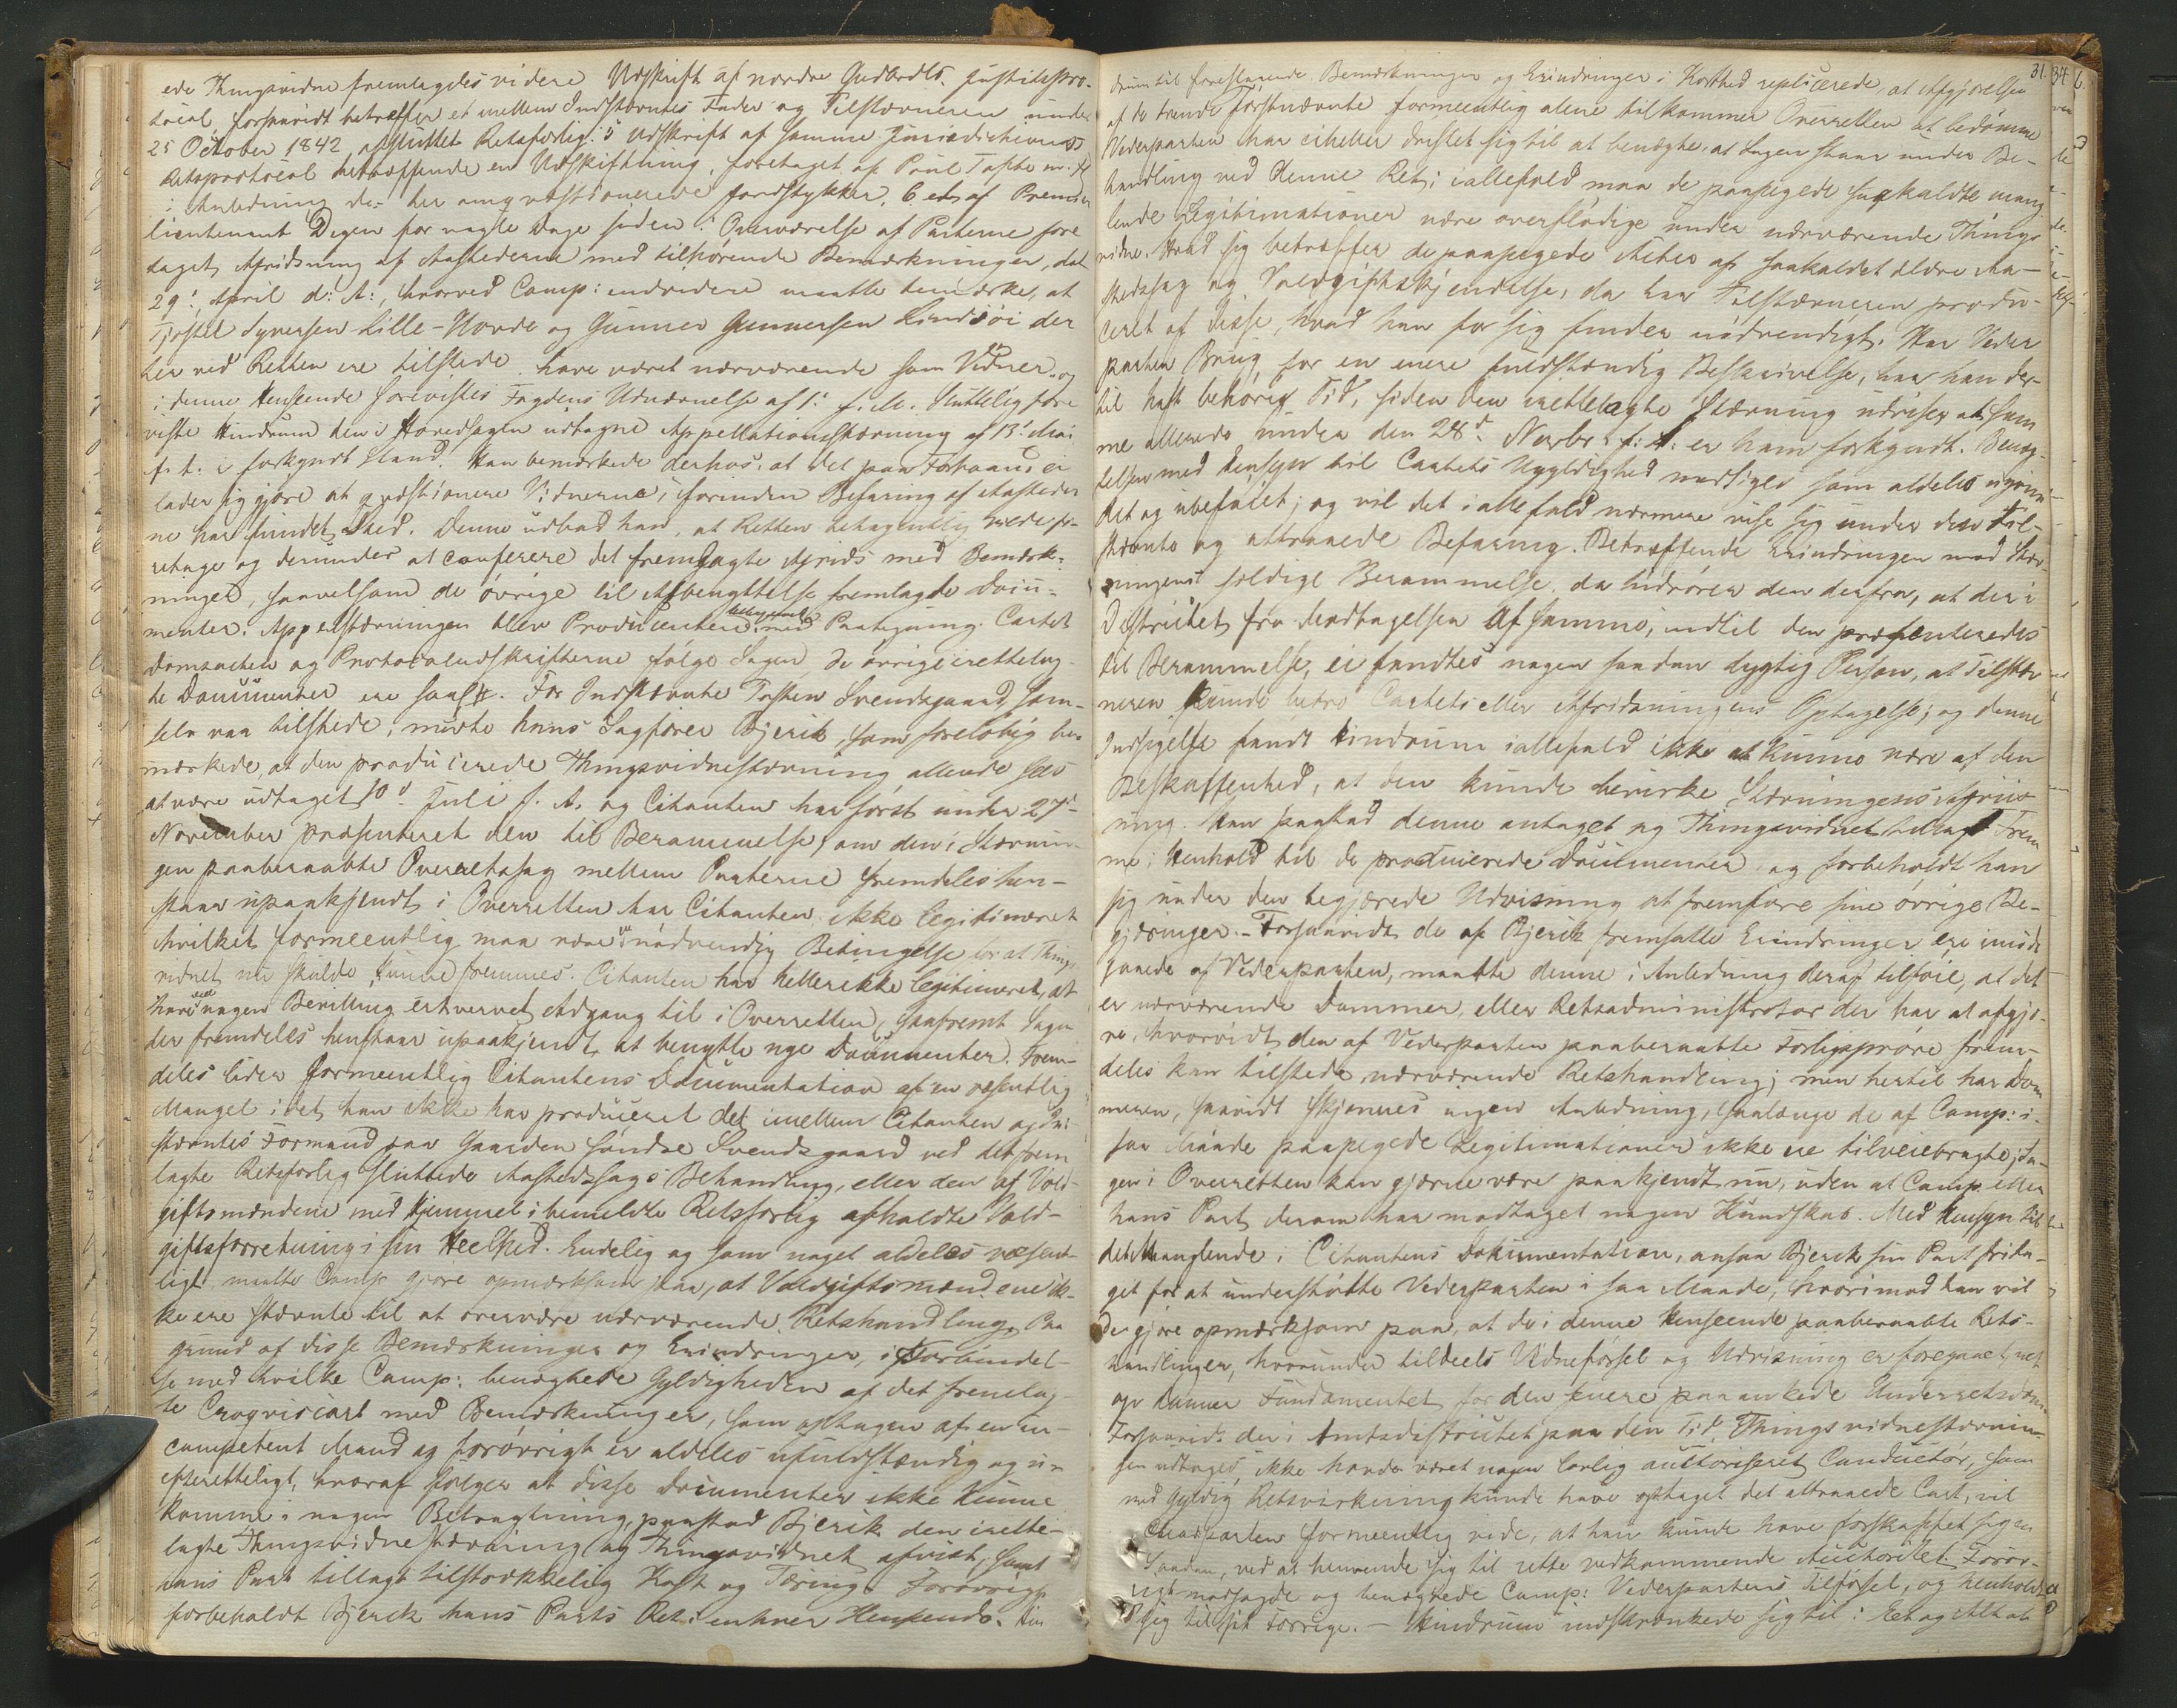 ede Thingsvidne fremlagdes videre Udskrift af nordre Gudbrdls. Justitspro-
tocol, forsaavidt betræffer et mellem Indstævntes Fader og Citstævneren under
25 October 1842 afsluttet Retsforlig: Udskrift af samme Jurisdictions
Retsprotocol betræffende en Udskiftning, foretaget af Poul Tofte m. fl
i Anledning de her omqvæstionerede Jordstykker, 6 et af Premier
lieutenant Degen for nogle Dage siden i Overværelse af Parterne fore
taget Afridsning af Aastederne med tilhørende Bemærkninger, dat.
29. April d: A:, hvorved Comp: endvidere maatte bemærke, at
Tjøstel Syversen Lille-Hovde og Gunner Gunnersen Lindsøi der
her ved Retten ere tilstede, have været nærværende som Vidner og
i denne Henseende forevistes Fogdens Udnævnelse af 1. f. M. Sluttelig fore
viste Hindrum den i Hovedsagen udtagne Appellationsstævning af 13. Mai
f. A: i forkyndt Stand. Han bemærkede derhos, at det paa Forhaand ei
lader sig gjøre at qvæstionere Vidnerne, forinden Befaring af Aasteder
ne har fundet Sted. Denne udbad han, at Retten behageligen vilde fo-
retage og derunder at conferere det fremlagte Afrids med Bemærk-
ninger, saavelsom de øvrige til Afbenyttelse fremlagde Docu-
menter. Appelstævningen blev Producenten med Paategning. Cartet
Domsacten og Protocoludskrifterne følge Sagen, de øvrige irettelag-
te Documenter ere saal. For Indstævnte Tosten Svendsgaard, som
selv var tilstede, mødte hans Sagfører Bjerck, som foreløbig be-
mærkede, at den producerede Thingsvidnestævning allerede sees
at være udtaget 10d. Juli f. A. og Citanten har først under 27d.
November præsenteret den til Berammelse, om den i Stævnin-
gen paaberaabte Overretssag mellem Parterne fremdeles hen-
staar upaakjendt i Overretten har Citanten ikke legitimeret
hvilket formeentlig maa være en nødvendig Betingelse for at Things
vidnet nu skulde kunne fremmes. Citanten har hellerikke legitimeret, at
have ved nogen Bevilling erhvervet Adgang til i Overretten (saafremt Sagen
der fremdeles henstaar upaakjendt, at benytte nye Documenter). Frem-
deles lider formeentlig Citantens Documentation af en væsentlig
Mangel i det han ikke har produceret det imellem Citanten og Ind-
stævntes Formand paa Gaarden søndre Svendsgaard ved det frem
lagte Retsforlig sluttede Aastedssags Behandling, eller den af Vold-
giftsmændene med Hjemmel i bemeldte Retsforlig afholdte Vold-
giftsforretning i sin Heelhed. Endelig og som noget aldeles væsent-
ligt maatte Comp: gjøre opmærksom paa, at Voldgiftsmændene ik-
ke ere stævnte til at overvære nærværende Retshandling. Paa
Grund af disse Bemærkninger og Erindringer, i Forbindel-
se med hvilke Comp: benægtede Gyldigheden af det fremlag-
te Croqviscart med Bemærkninger, som optagen af en in-
competent Mand og forøvrigt er aldeles ufuldstændig og u-
efterretteligt, hvoraf følger at disse Documenter ikke kunne
komme i nogen Betragtning, paastod Bjerck den irette-
lagte Thingsvidnestævning og Thingsvidnet afvist, samt
hans Part tillagt tilstrækkelig Kost og Tæring. Forøvrigt
forbeholdt Bjerck hans Parts Ret i enhver Henseende. Hin
31. 34.
drum til foreslaaende Bemærkninger og Erindringer i Korthed replicerede, at Afgjørelsen
af de trende Førstnævnte formeentlig alene tilkommer Overretten at bedømme
Vederparten har eiheller dristet sig til at benægte, at Sagen staar under Be-
handling ved denne Ret; iallefald maa de paapegede saakaldte mang
lende Legitimationer være overflødige under nærværende Things
vidne. Hvad sig betræffer de paapegede Acter af saakaldet ældre Aa-
stedssag og Voldgiftskjendelse, da har Citstævneren produ-
ceret af disse, hvad han for sig finder nødvendigt. Har Veder
parten Brug for en mere fuldstændig Beskrivelse, har han der-
til haft behørig Tid, siden den irettelagte Stævning udviser at sam
me allerede under den 28d. Novbr. f: A: er ham forkyndt. Benæg-
telsen med Hensyn til Cartets Ugyldighed modsiges som aldeles ugrun-
det og ubeføiet; og vil det iallefald nærmere vise sig under den til-
stævnte og attraaede Befaring. Betræffende Erindringen mod Stæv-
ningens sildige Berammelse, da hidrører den derfra, at der i
Districtet fra Modtagelsen af samme, indtil den præsenteredes
til Berammelse, ei fandtes nogen saadan dygtig Person, at Citstæv
neren kunde betro Cartets eller Afridsningens Optagelse; og denne
Indsigelse fandt Hindrum iallefald ikke at kunne være af den
Beskaffenhed, at den kunde bevirke Stævningens Afviis
ning. Han paastod denne antaget og Thingsvidnet tilladt Frem
me i Henhold til de producerede Documenter og forbeholdt han
sig under den begjærede Udvisning at fremføre sine øvrige Be-
gjæringer. – Forsaavidt de af Bjerck fremsatte Erindringer ere imøde
gaaede af Vederparten, maatte denne i Anledning deraf tilføie, at det
er nærværende Dommer, eller Retsadministrator der har at afgjø-
re, hvorvidt den af Vederparten paaberaabte Forligsprøve frem-
deles kan tilstede nærværende Retshandling; men hertil har Dom
meren, saavidt skjønnes ingen Anledning, saalænge de af Comp: i
saa Maade paapegede Legitimationer ikke ere tilveiebragte; Sa-
gen i Overretten kan gjerne være paakjendt nu, uden at Comp. eller
hans Part derom har modtaget nogen Kundskab. Med Hensyn til
det Manglende i Citantens Dokumentation, ansaa Bjerck sin Part frita-
get for at understøtte Vederparten i saa Maade, hvorimod han vil
de gjøre opmærksom paa, at de i denne Henseende paaberaabte Rets-
handlinger, hvorunder tildeels Vidneførsel og Udvisning er foregaaet, net
op danner Fundamentet for den senere paaankede Underretsdom.
Forsaavidt der i Amtsdistrictet paa den Tid, Thingsvidnestævnin-
gen udtoges, ikke havde været nogen lovlig authoriseret Conducteur, som
med gyldig Retsvirkning kunde have optaget det attraaede Cart, vil
Contraparten formeentlig vide, at han kunde have forskaffet sig en
Saadan, ved at henvende sig til rette vedkommende Authoritet. Forøv-
rigt modsagde og benægtede Comp: Vederpartens Tilførsel, og henholdt
sig til sit Forrige. – Hindrum indskrænkede sig til i Eet og Alt at